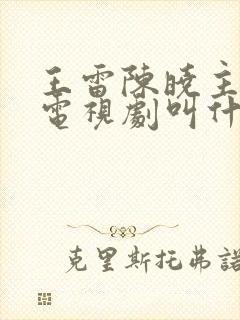 王雷陳曉主
電視劇叫什
克里斯托弗諾